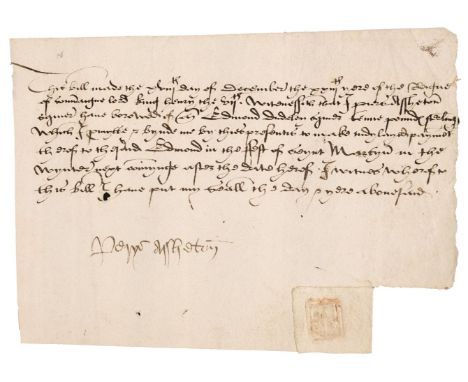 This bill made the xviijth day of December the xxiijth yere of the Reigne
of our sou'aigne lord king henry the vijth Witnessith that I piers Assheton
squier haue borowed of Edmond Dudson squier xx poundꝭ sterling
Which I promyse & bynde me by thies presentꝭ to make and paiment
therof to the said Edmond in the fest of seynt Martyn in the
Wynter next comynge after the date herof I witnes wherof to
this bill I haue put my seall the day & yere abouesaid
Perys Assheton